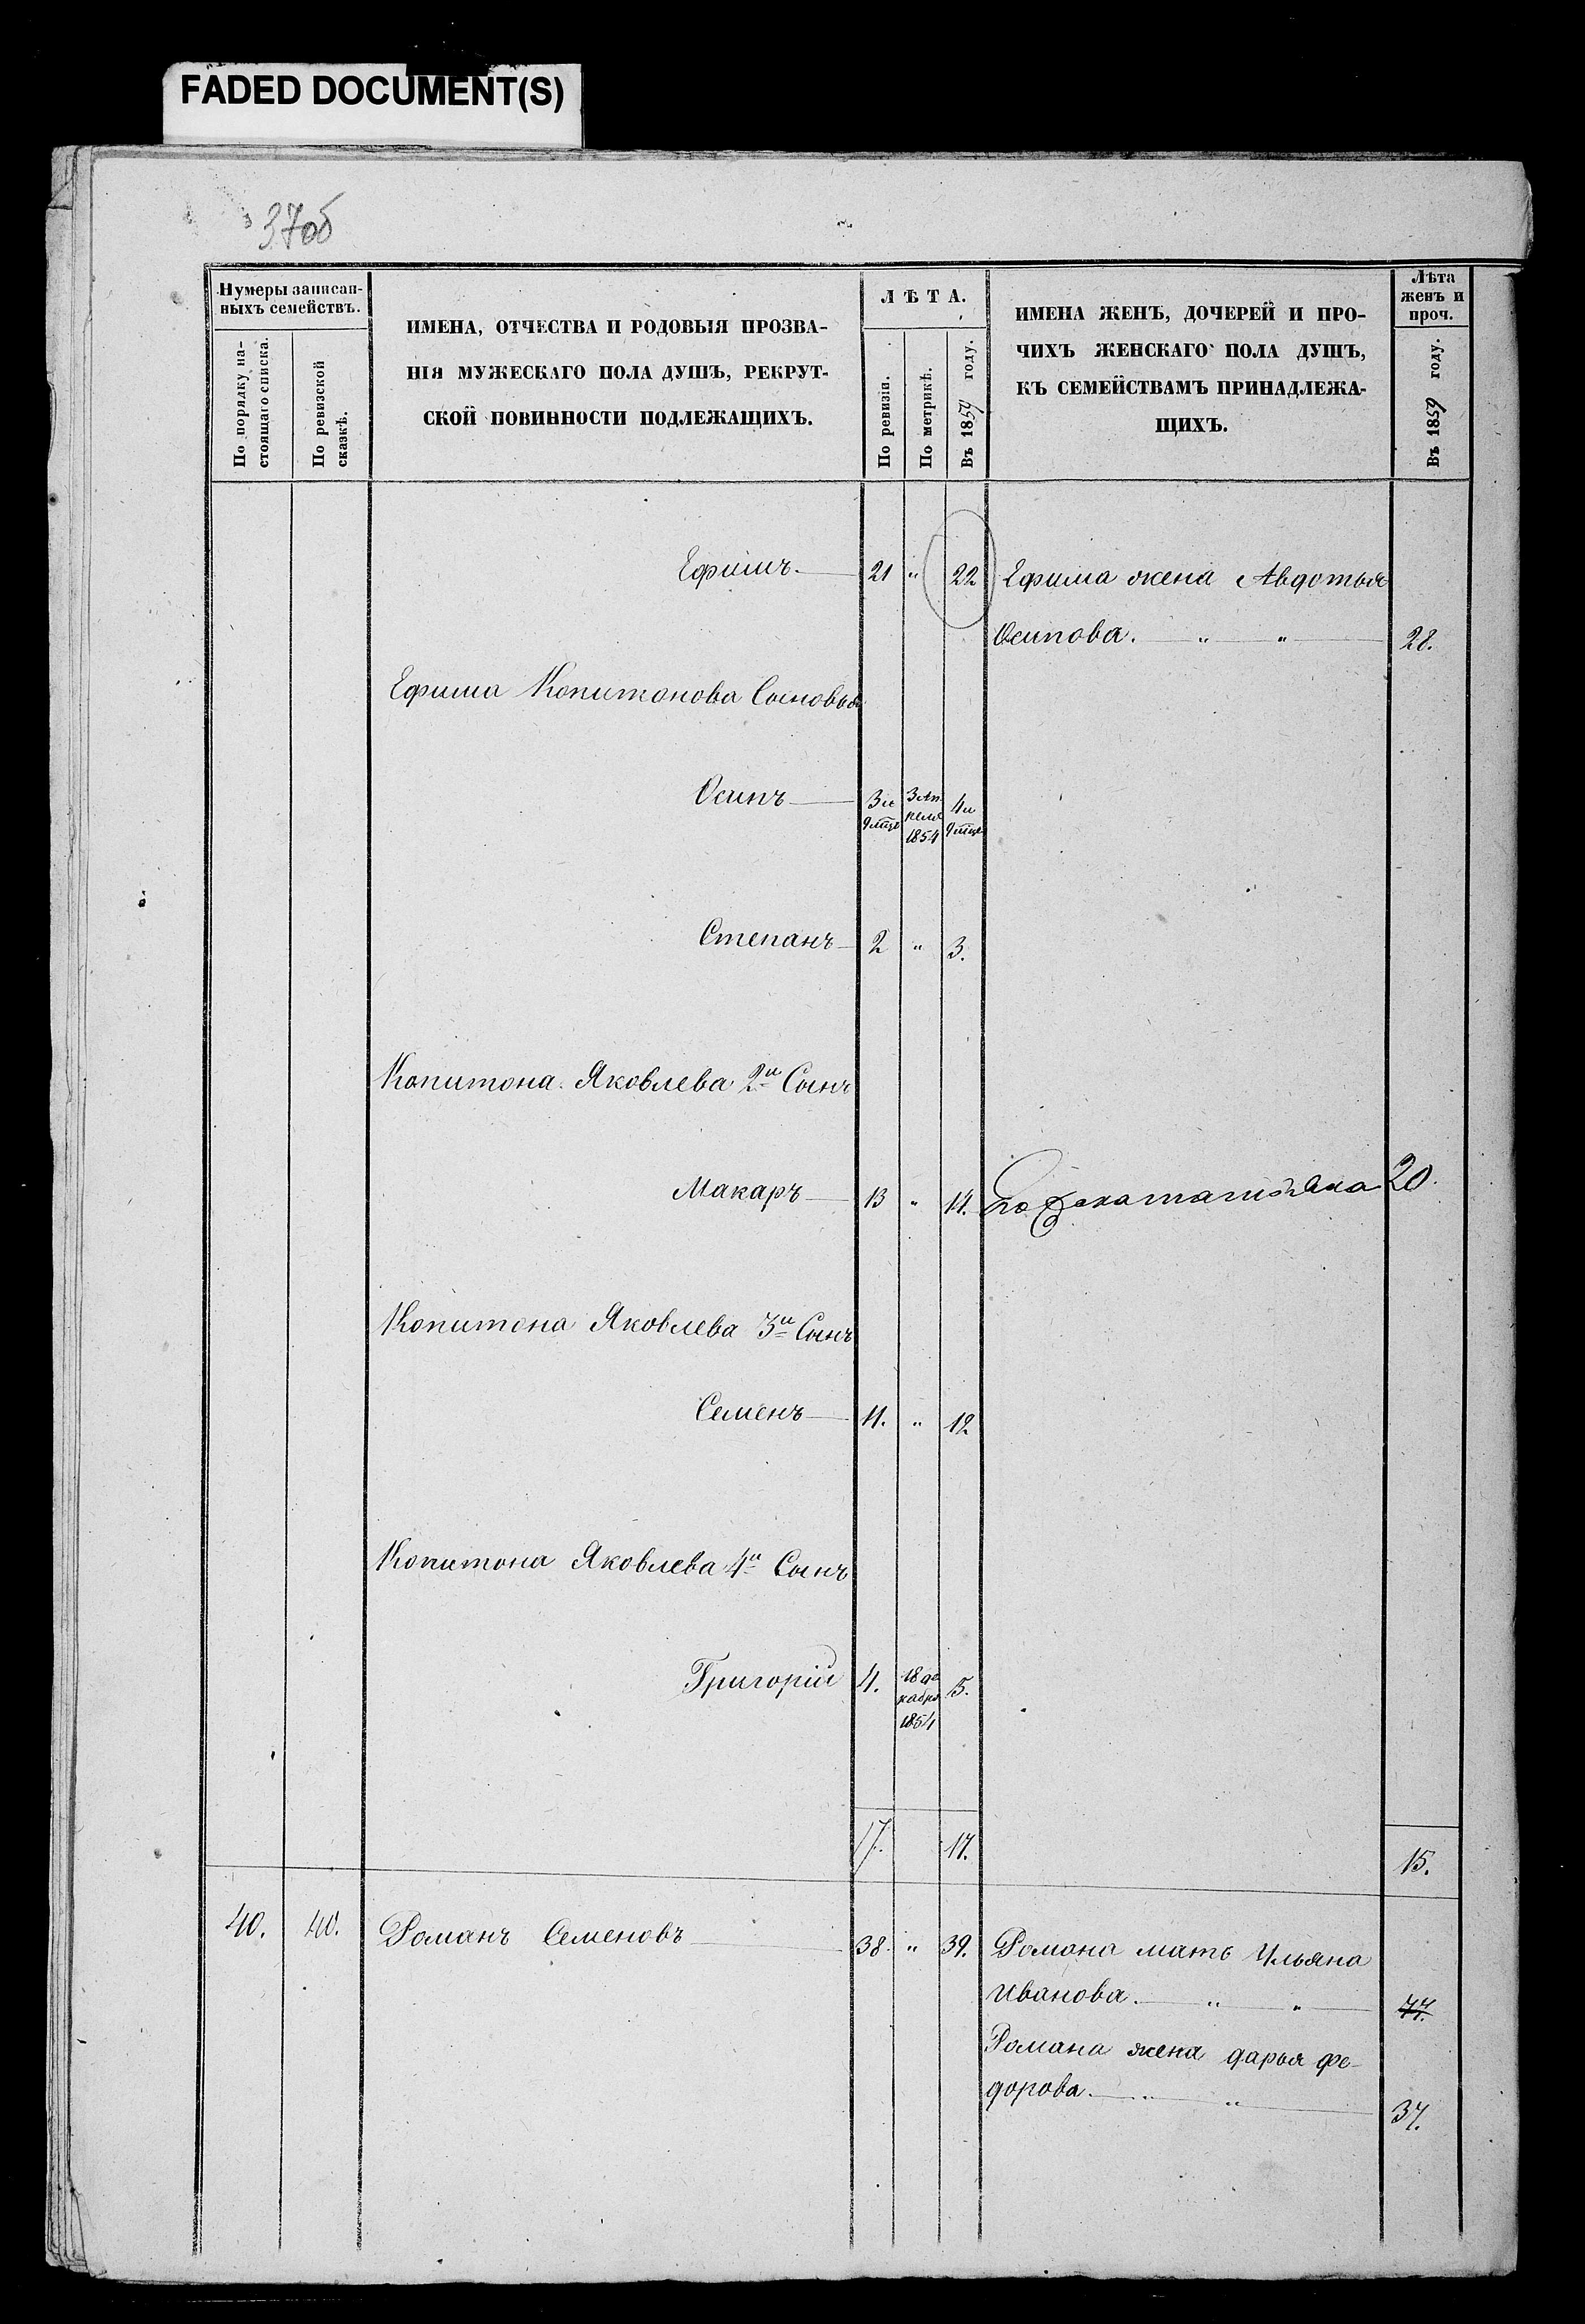 FADED DOCUMENT(S)
37об
Нумеры записан-
ныхъ семействъ.
По порядку на-
стоящаго списка.
По ревизской
сказкѣ.
ИМЕНА, ОТЧЕСТВА И РОДОВЫЯ ПРОЗВА-
НІЯ МУЖЕСКАГО ПОЛА ДУШЪ, РЕКРУТ-
СКОЙ ПОВИННОСТИ ПОДЛЕЖАЩИХЪ.
ЛѢТА.
По ревизіи.
По метрикѣ.
Въ 1859 году.
ИМЕНА ЖЕНЪ, ДОЧЕРЕЙ И ПРО-
ЧИХЪ ЖЕНСКАГО ПОЛА ДУШЪ,
КЪ СЕМЕЙСТВАМЪ ПРИНАДЛЕЖА-
ЩИХЪ.
Лѣта
женъ и
проч.
Въ 1859 году.
Ефимъ 21 " 22 Ефима жена Авдотья
Осипова. " " 28.
Ефима Копитонова Сыновья
Осипъ 3 и 3 Ап 4 и
реля
1854
Степанъ 2 " 3.
Копитона Яковлева 2й Сынъ
Макаръ 13 " 14. 20.
Копитона Яковлева 3й Сынъ
Семенъ 11. " 12
Копитона Яковлева 4й Сынъ
Григорій 4. 18 де 5.
кабря
1854
17. 17. 15.
40. 40. Романъ Семеновъ 38. " 39. Романа мать Ульяна
Иванова. " " 77.
Романа жена дарья фе-
дорова. " " 37.